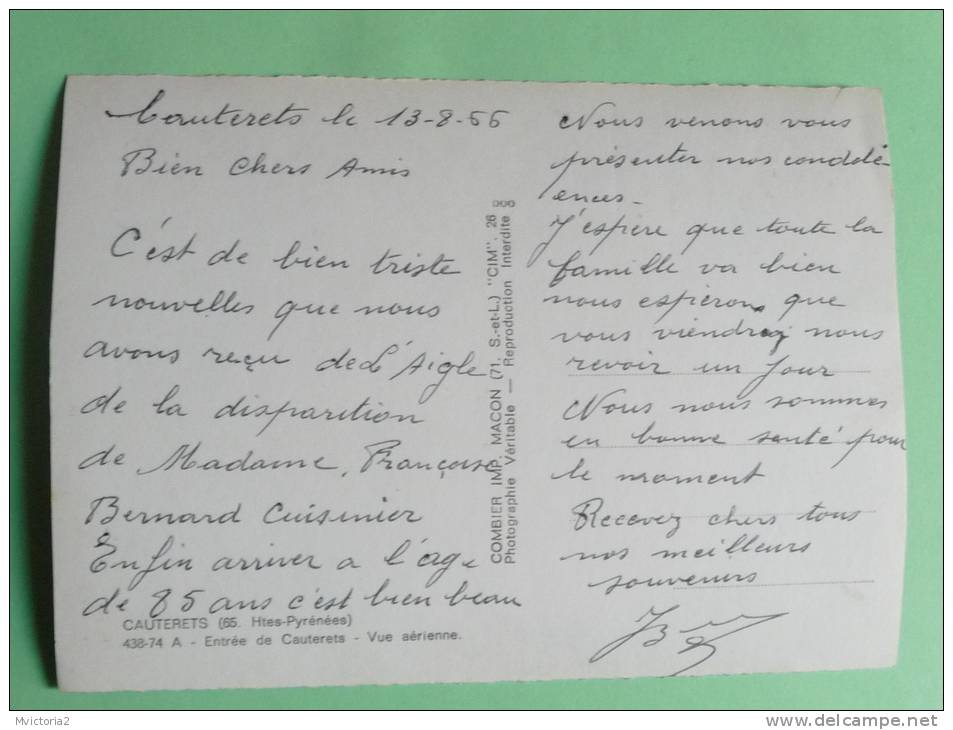 Cauterets le 13-8-66
Bien Chers Amis
C'est de bien triste
nouvelles que nous
avons reçu de L'Aigle
de la disparition
de Madame, Françoise
Bernard Cuisinier
Enfin arriver a l'age
de 85 ans c'est bien beau
CAUTERETS (65. Htes-Pyrénées)
438-74 A - Entrée de Cauterets - Vue aérienne.
COMBIER IMP. MACON (71, S.-et-L.) "CIM", 26
Photographie Véritable — Reproduction Interdite
Nous venons vous
présenter nos condolé-
ences-
J'espère que toute la
famille va bien
nous espérons que
vous viendrez nous
revoir un jour
Nous nous sommes
en bonne santé pour
le moment
Recevez chers tous
nos meilleurs
souvenirs
Mvictoria2
www.delcampe.net